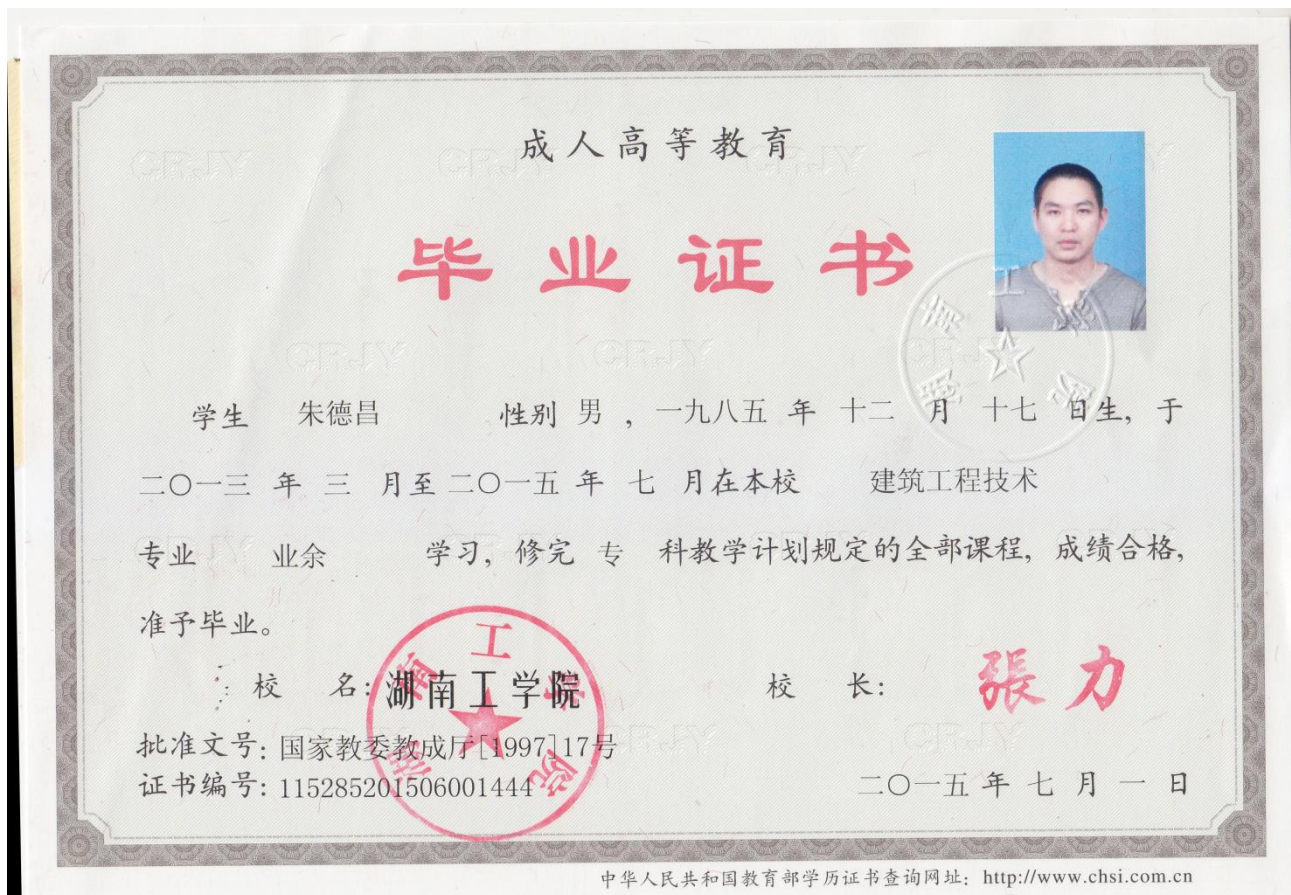 成人高等教育
毕业证书
学生 朱德昌 性别 男 , 一九八五 年 十二 月 十七 日生, 于
二〇一三 年 三 月至 二〇一五 年 七 月在本校 建筑工程技术
专业 业余 学习, 修完 专 科教学计划规定的全部课程, 成绩合格,
准予毕业。
校 名: 湖南工学院 校 长: 張力
湖南工学院
湖南工学院
批准文号: 国家教委教成厅[1997]17号
证书编号: 115285201506001444
二〇一五 年 七 月 一 日
中华人民共和国教育部学历证书查询网址: http://www.chsi.com.cn
CRJY CRJY CRJY CRJY
CRJY CRJY CRJY